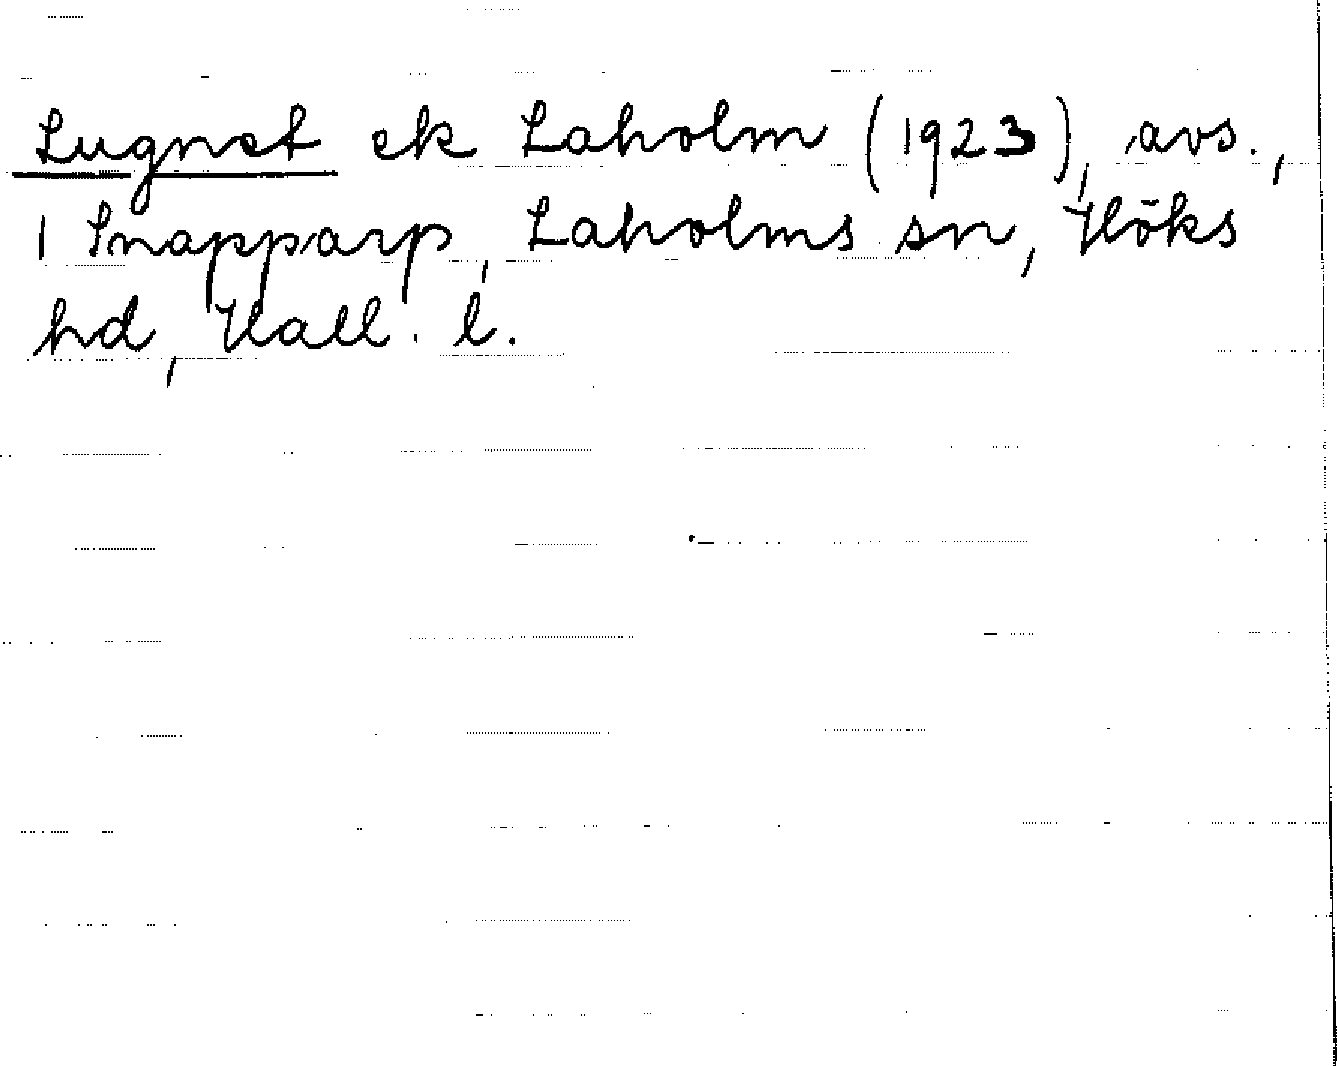 Lugnet ek Laholm (1923), avs.,
1 Snapparp, Laholms sn, Höks
hd, Hall. l.